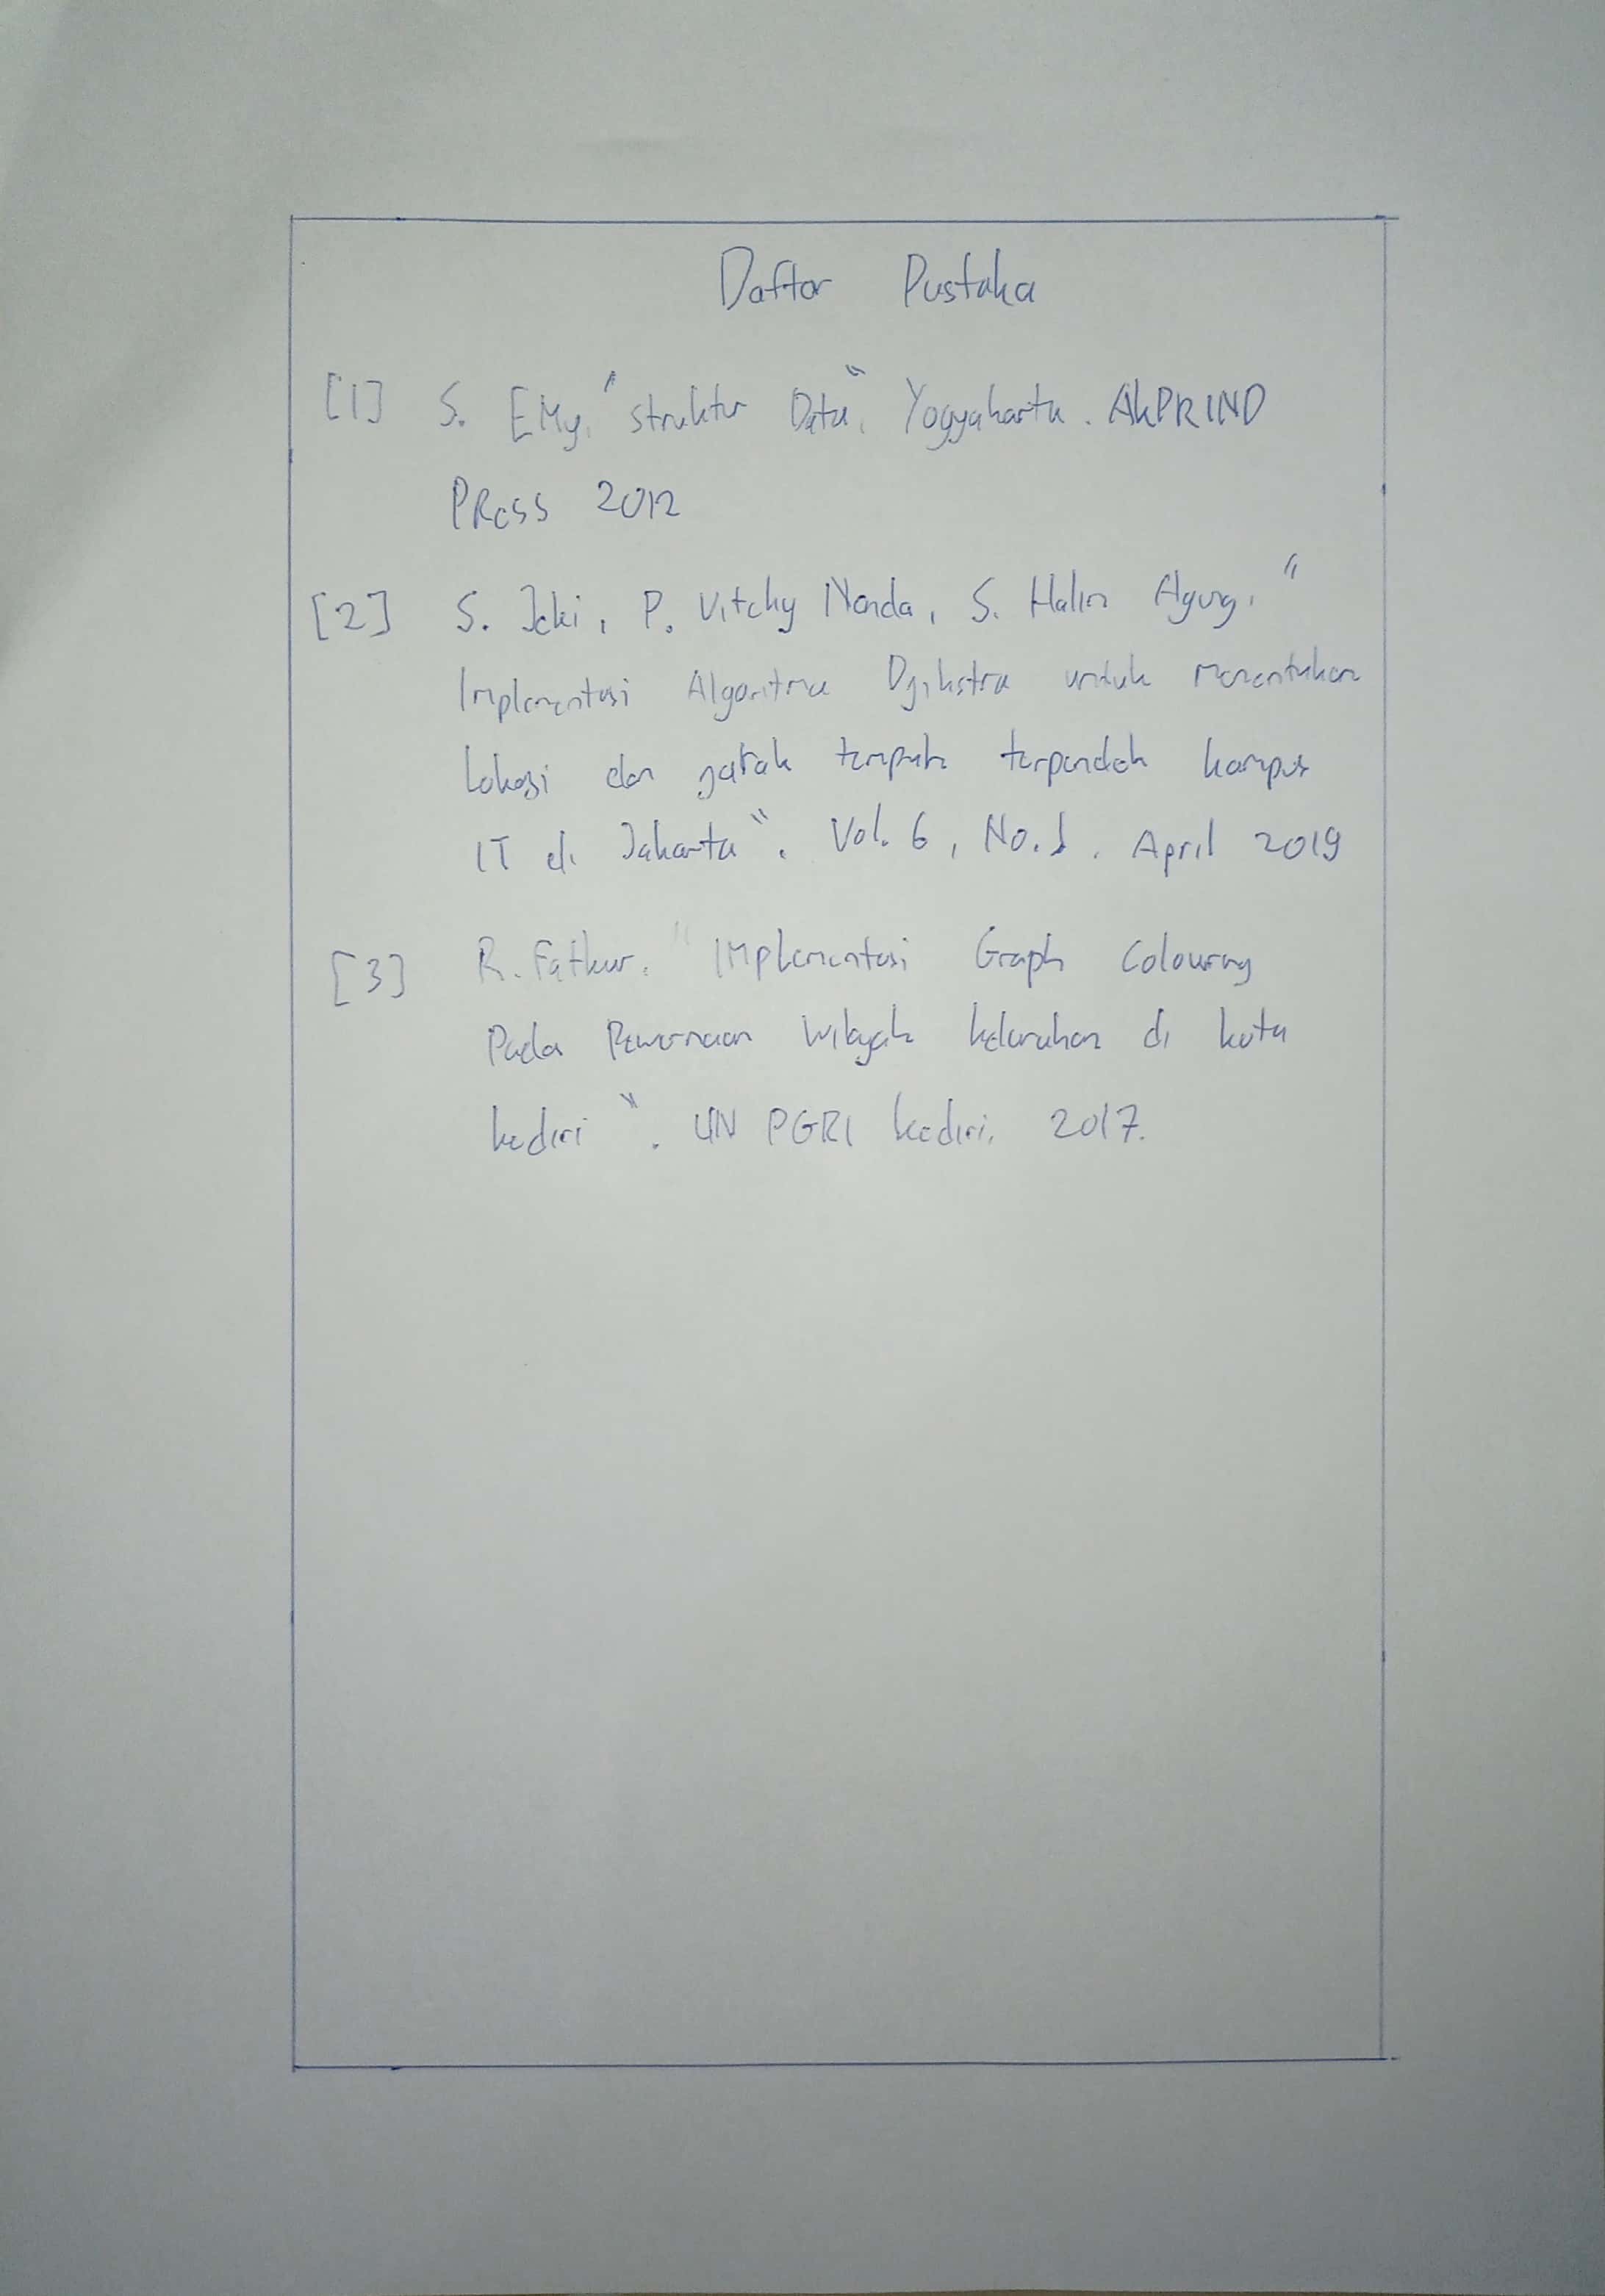 Daftar Pustaka
[1] S. EMy, "struktur Data", Yogyakarta. AKPRIND
PRess 2012
[2] S. Icki, P. Vitchy Nanda, S. Halim Agung, "
Implementasi Algoritma Djikstra untuk menentukan
lokasi dan jarak tempuh terpendek kampus
IT di Jakarta". Vol. 6, No. 1. April 2019
[3] R. Fatkur. "IMplementasi Graph Colouring
Pada Pewarnaan wilayah kelurahan di kota
kediri". UN PGRI kediri. 2017.